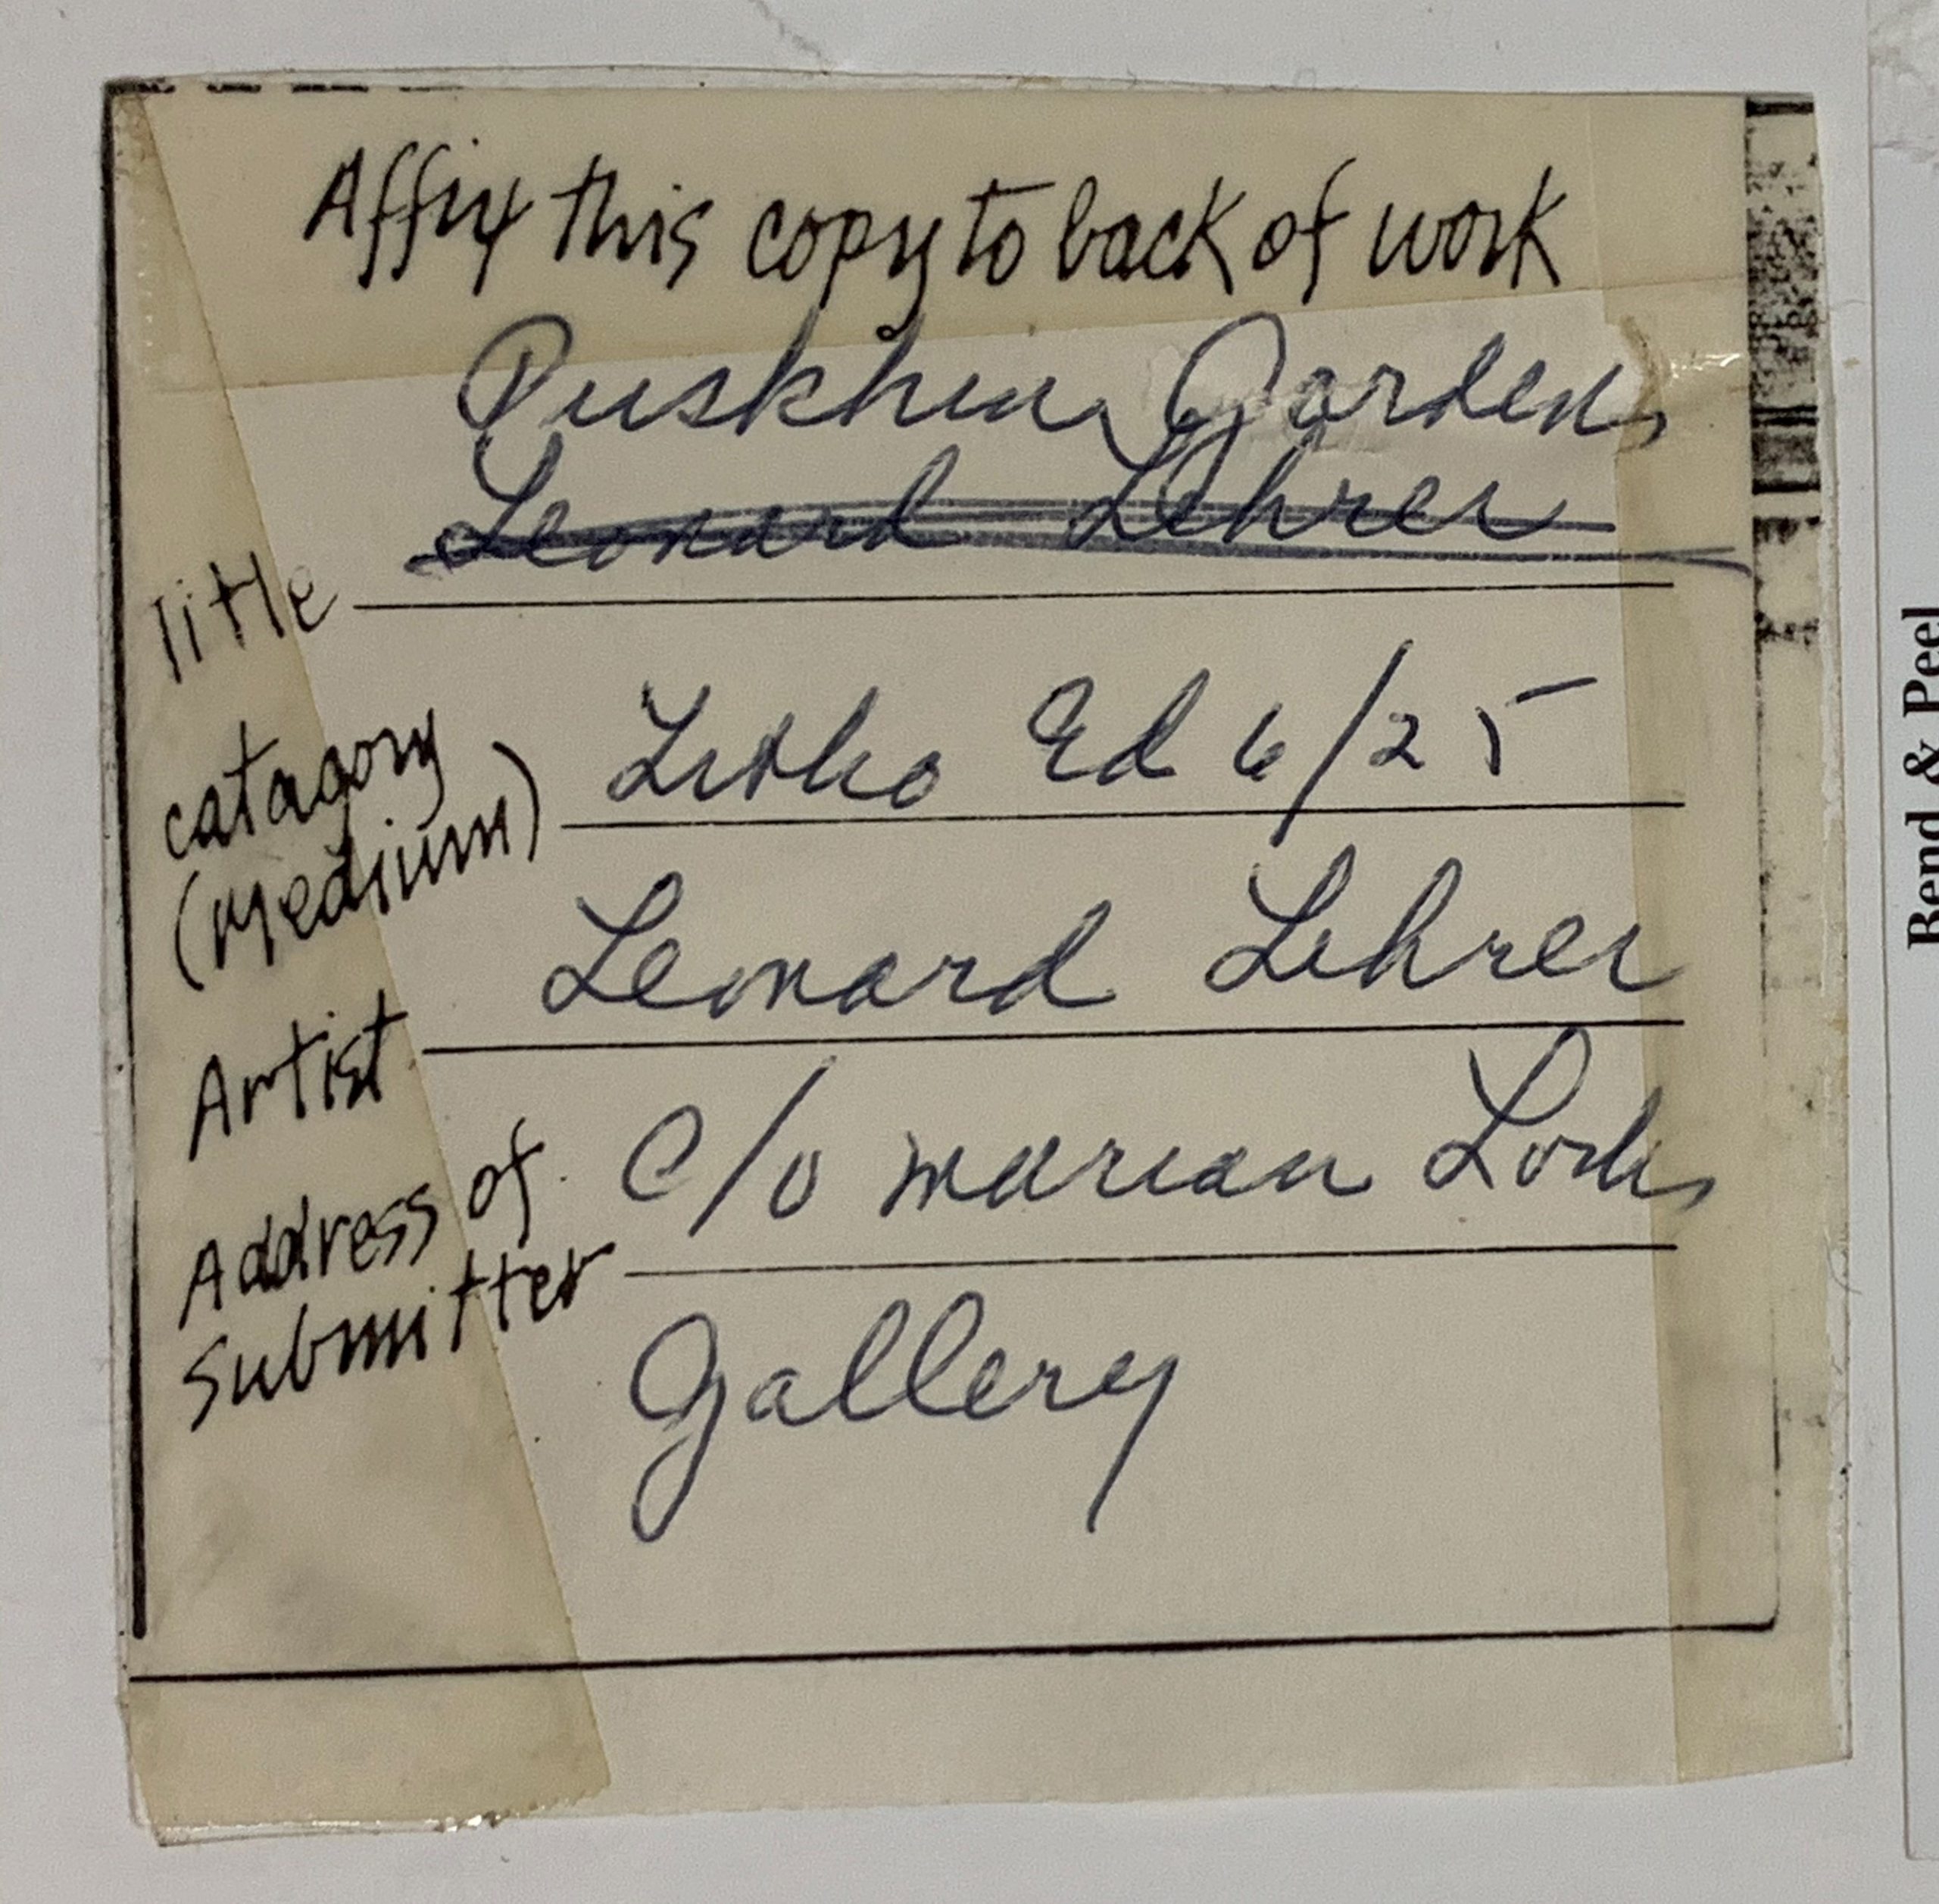 Affix this copy to back of work
Puskhin Garden
Leonard Lehrer
Title
catagory
(Medium)
Litho Ed 6/25
Artist
Leonard Lehrer
Address of
submitter
c/o marian Locks
Gallery
Bend & Peel